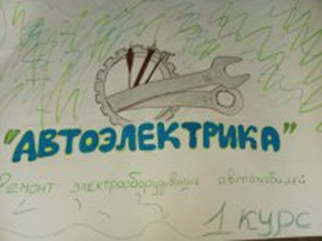 "АВТОЭЛЕКТРИКА"
Ремонт электрооборудования автомобилей
1 КУРС